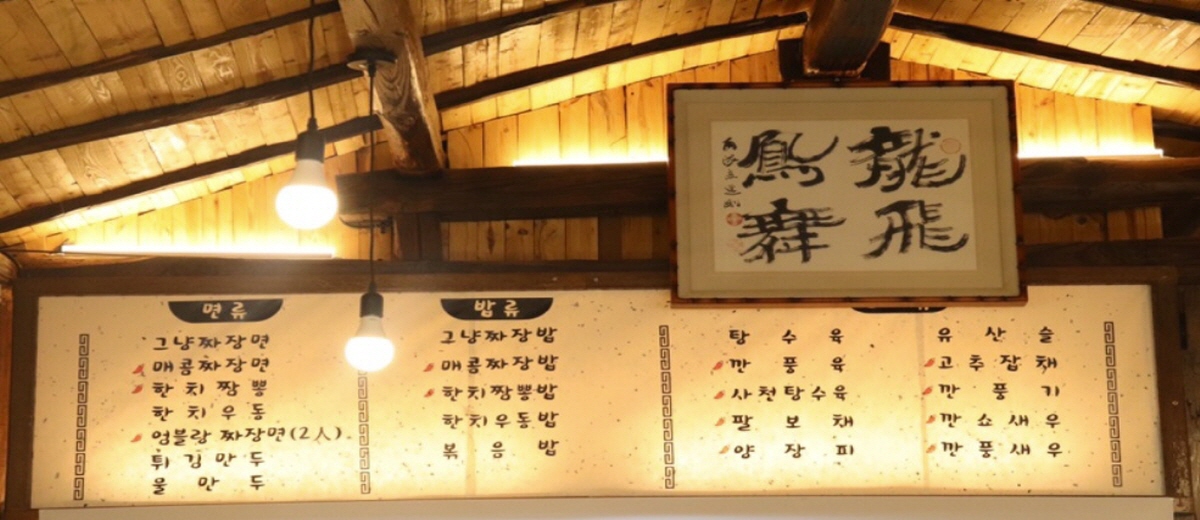 龍飛
鳳舞
면류
그냥짜장면
매콤짜장면
한치짬뽕
한치우동
엄블랑 짜장면(2人)
튀김만두
물만두
밥류
그냥짜장밥
매콤짜장밥
한치짬뽕밥
한치우동밥
볶음밥
탕수육
깐풍육
사천탕수육
팔보채
양장피
유산슬
고추잡채
깐풍기
깐쇼새우
깐풍새우